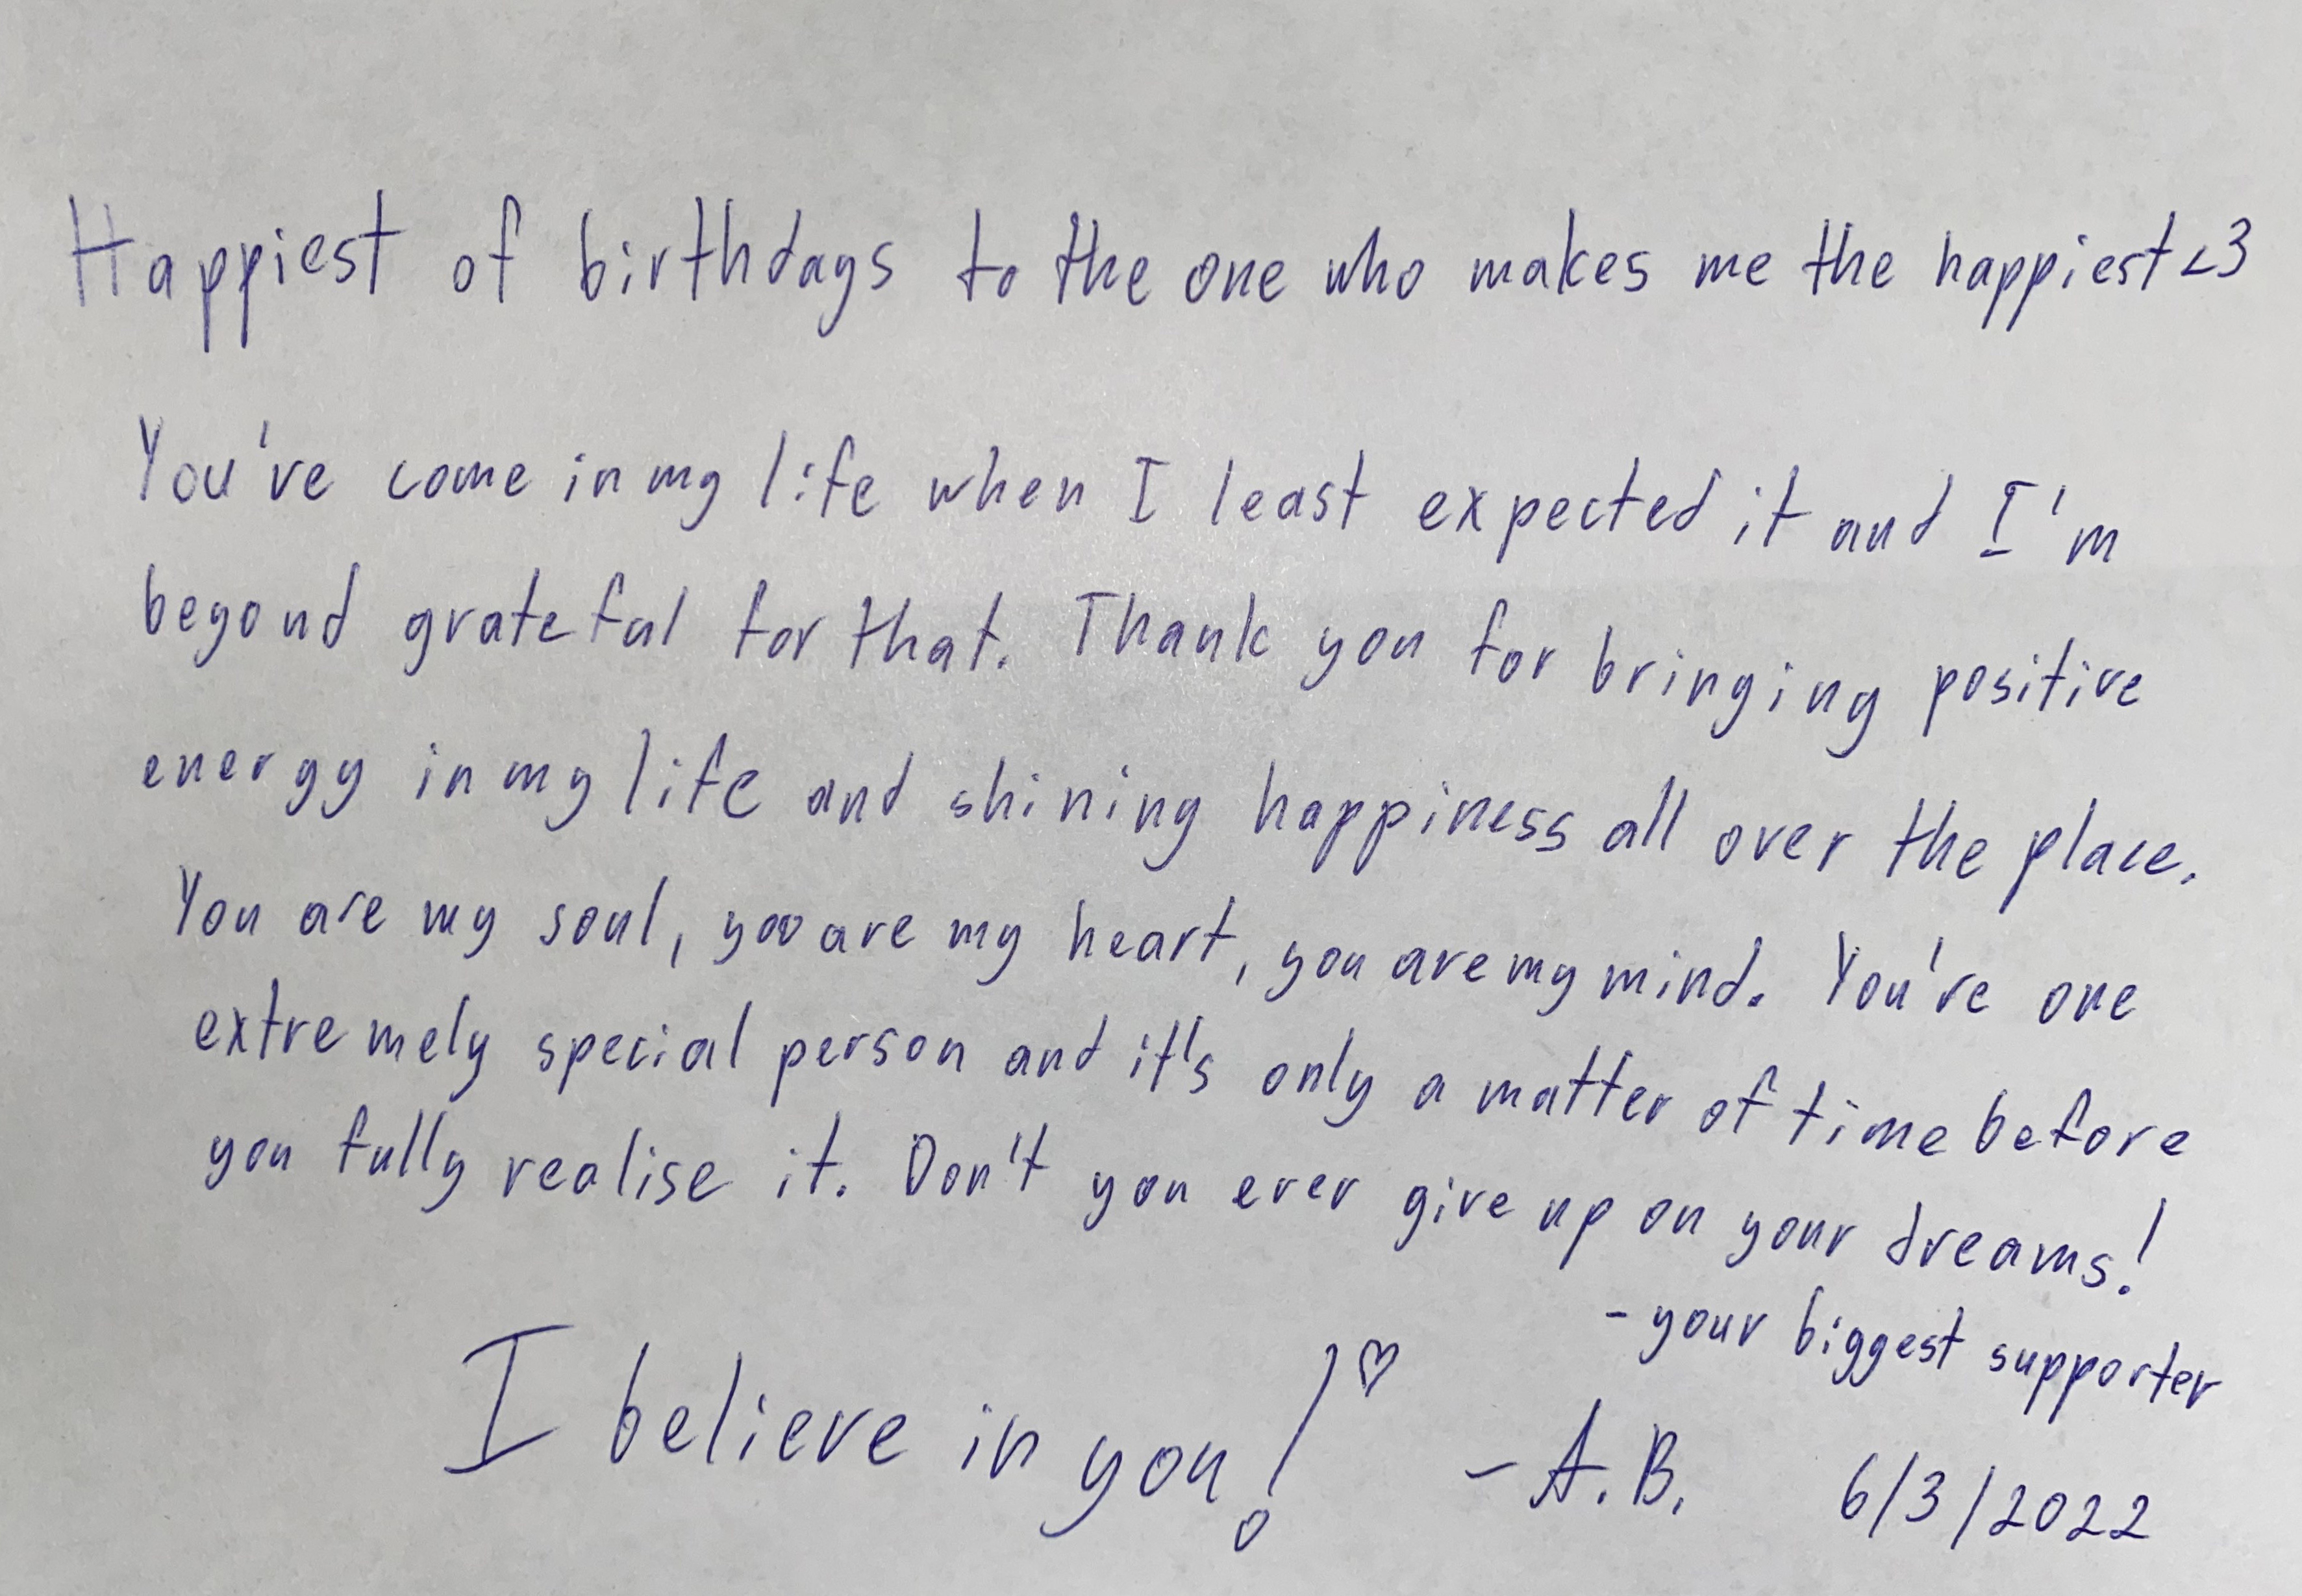 Happiest of birthdays to the one who makes me the happiest <3
You've come in my life when I least expected it and I'm
beyond grateful for that. Thank you for bringing positive
energy in my life and shining happiness all over the place.
You are my soul, you are my heart, you are my mind. You're one
extremely special person and it's only a matter of time before
you fully realise it. Don't you ever give up on your dreams!
- your biggest supporter
I believe in you! ♡ - A.B. 6/3/2022